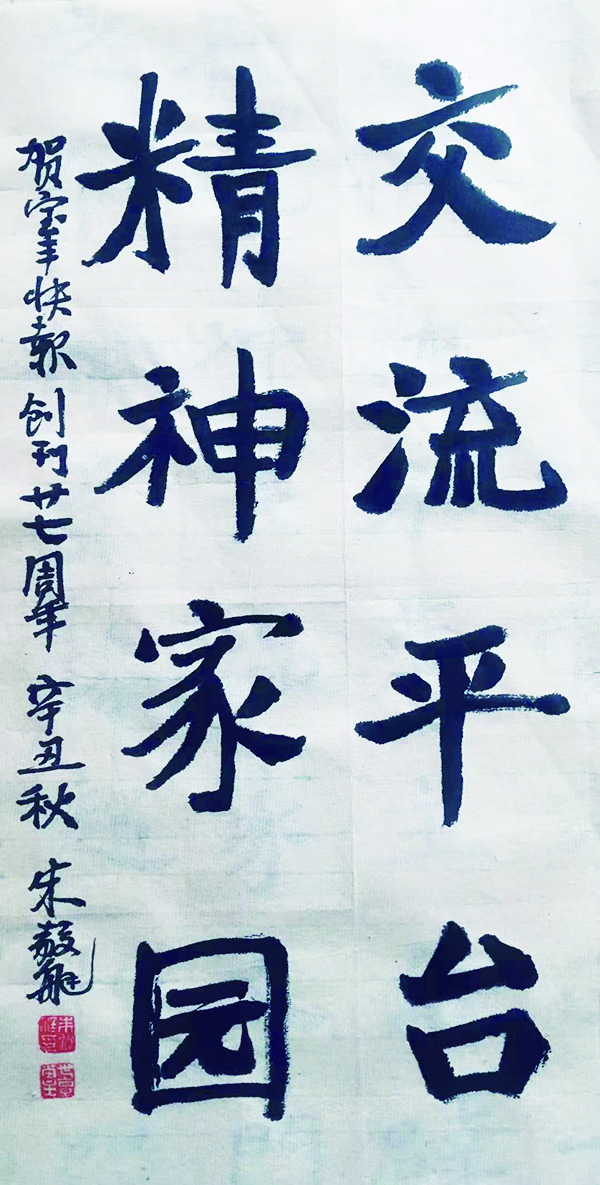 交流平台
精神家园
贺宝丰快报创刊廿七周年 辛丑秋 朱